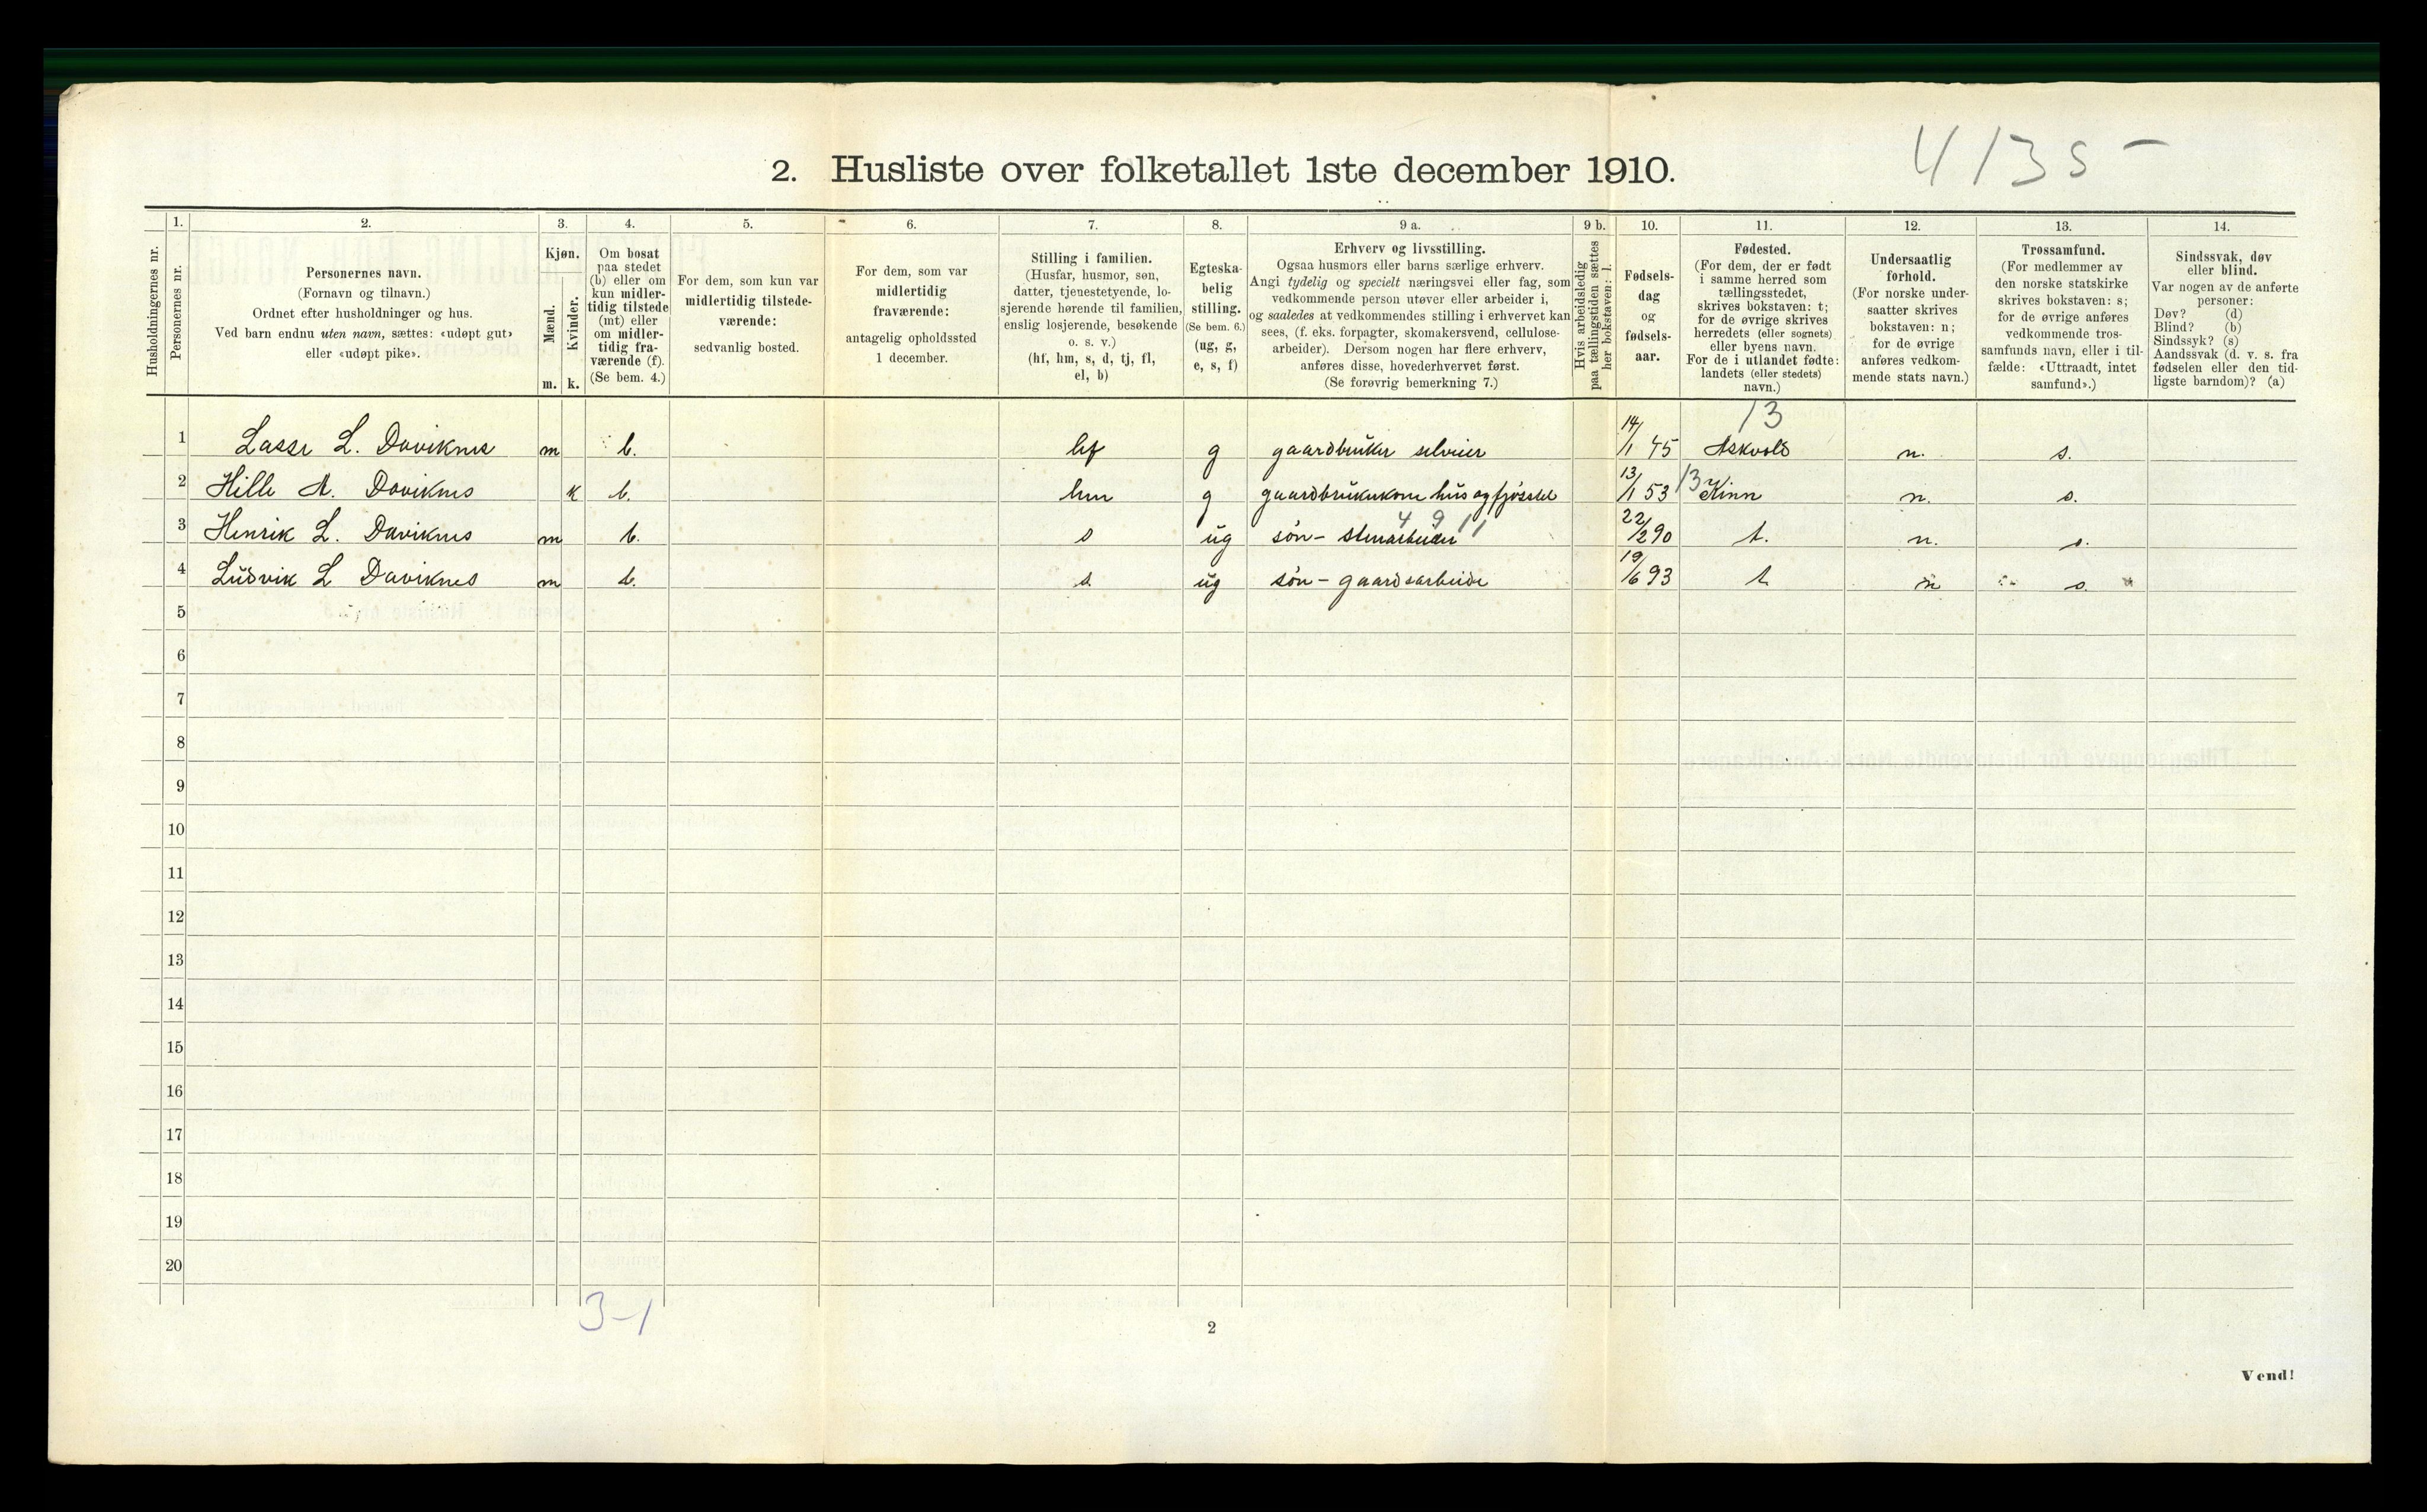 4135-
2. Husliste over folketallet 1ste december 1910.
Husholdningernes nr.
1.
Personernes nr.
2.
Personernes navn.
(Fornavn og tilnavn.)
Ordnet efter husholdninger og hus.
Ved barn endnu uten navn, sættes: «udøpt gut»
eller «udøpt pike».
3.
Kjøn.
Mænd.
Kvinder.
m. k.
4.
Om bosat
paa stedet
(b) eller om
kun midler-
tidig tilstede
(mt) eller
om midler-
tidig fra-
værende (f).
(Se bem. 4.)
5.
For dem, som kun var
midlertidig tilstede-
værende:
sedvanlig bosted.
6.
For dem, som var
midlertidig
fraværende:
antagelig opholdssted
1 december.
7.
Stilling i familien.
(Husfar, husmor, søn,
datter, tjenestetyende, lo-
sjerende hørende til familien,
enslig losjerende, besøkende
o. s. v.)
(hf, hm, s, d, tj, fl,
el, b)
8.
Egteska-
belig
stilling.
(Se bem. 6.)
(ug, g,
e, s, f)
9 a.
Erhverv og livsstilling.
Ogsaa husmors eller barns særlige erhverv.
Angi tydelig og specielt næringsvei eller fag, som
vedkommende person utøver eller arbeider i,
og saaledes at vedkommendes stilling i erhvervet kan
sees, (f. eks. forpagter, skomakersvend, cellulose-
arbeider). Dersom nogen har flere erhverv,
anføres disse, hovederhvervet først.
(Se forøvrig bemerkning 7.)
9 b.
Hvis arbeidsledig
paa tællingstiden sættes
her bokstaven: l.
10.
Fødsels-
dag
og
fødsels-
aar.
11.
Fødested.
(For dem, der er født
i samme herred som
tællingsstedet,
skrives bokstaven: t;
for de øvrige skrives
herredets (eller sognets)
eller byens navn.
For de i utlandet fødte:
landets (eller stedets)
navn.)
12.
Undersaatlig
forhold.
(For norske under-
saatter skrives
bokstaven: n;
for de øvrige
anføres vedkom-
mende stats navn.)
13.
Trossamfund.
(For medlemmer av
den norske statskirke
skrives bokstaven: s;
for de øvrige anføres
vedkommende tros-
samfunds navn, eller i til-
fælde: «Uttraadt, intet
samfund».)
14.
Sindssvak, døv
eller blind.
Var nogen av de anførte
personer:
Døv? (d)
Blind? (b)
Sindssyk? (s)
Aandssvak (d. v. s. fra
fødselen eller den tid-
ligste barndom)? (a)
13
1 Lasse L. Daviknes m b. hf g gaardbruker selveier 14/1 45 Askvold n. s.
2 Hille A. Daviknes k b. hm g gaardbrukerkone hus og fjøsstel 13/1 53 13 Kinn n. s.
4 9 11
3 Henrik L. Daviknes m b. s ug søn - stenarbeider 22/2 90 t. n. s.
4 Ludvik L Daviknes m b. s. ug søn - gaardsarbeide 19/6 93 t n s.
5
6
7
8
9
10
11
12
13
14
15
16
17
18
19
20
3-1
2
Vend!